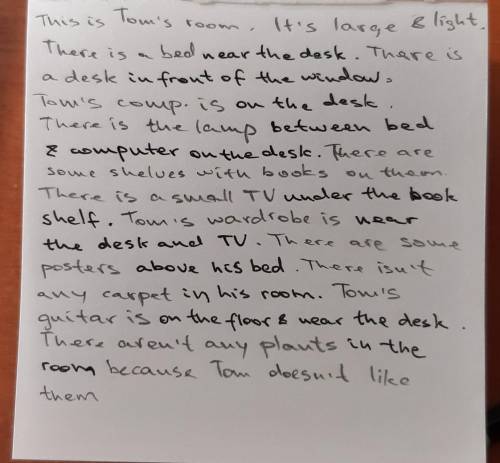 This is Tom's room. It's large & light.
There is a bed near the desk. There is
a desk in front of the window.
Tom's comp. is on the desk.
There is the lamp between bed
& computer on the desk. There are
some shelves with books on them.
There is a small TV under the book
shelf. Tom's wardrobe is near
the desk and TV. There are some
posters above his bed. There isn't
any carpet in his room. Tom's
guitar is on the floor & near the desk.
There aren't any plants in the
room because Tom doesn't like
them